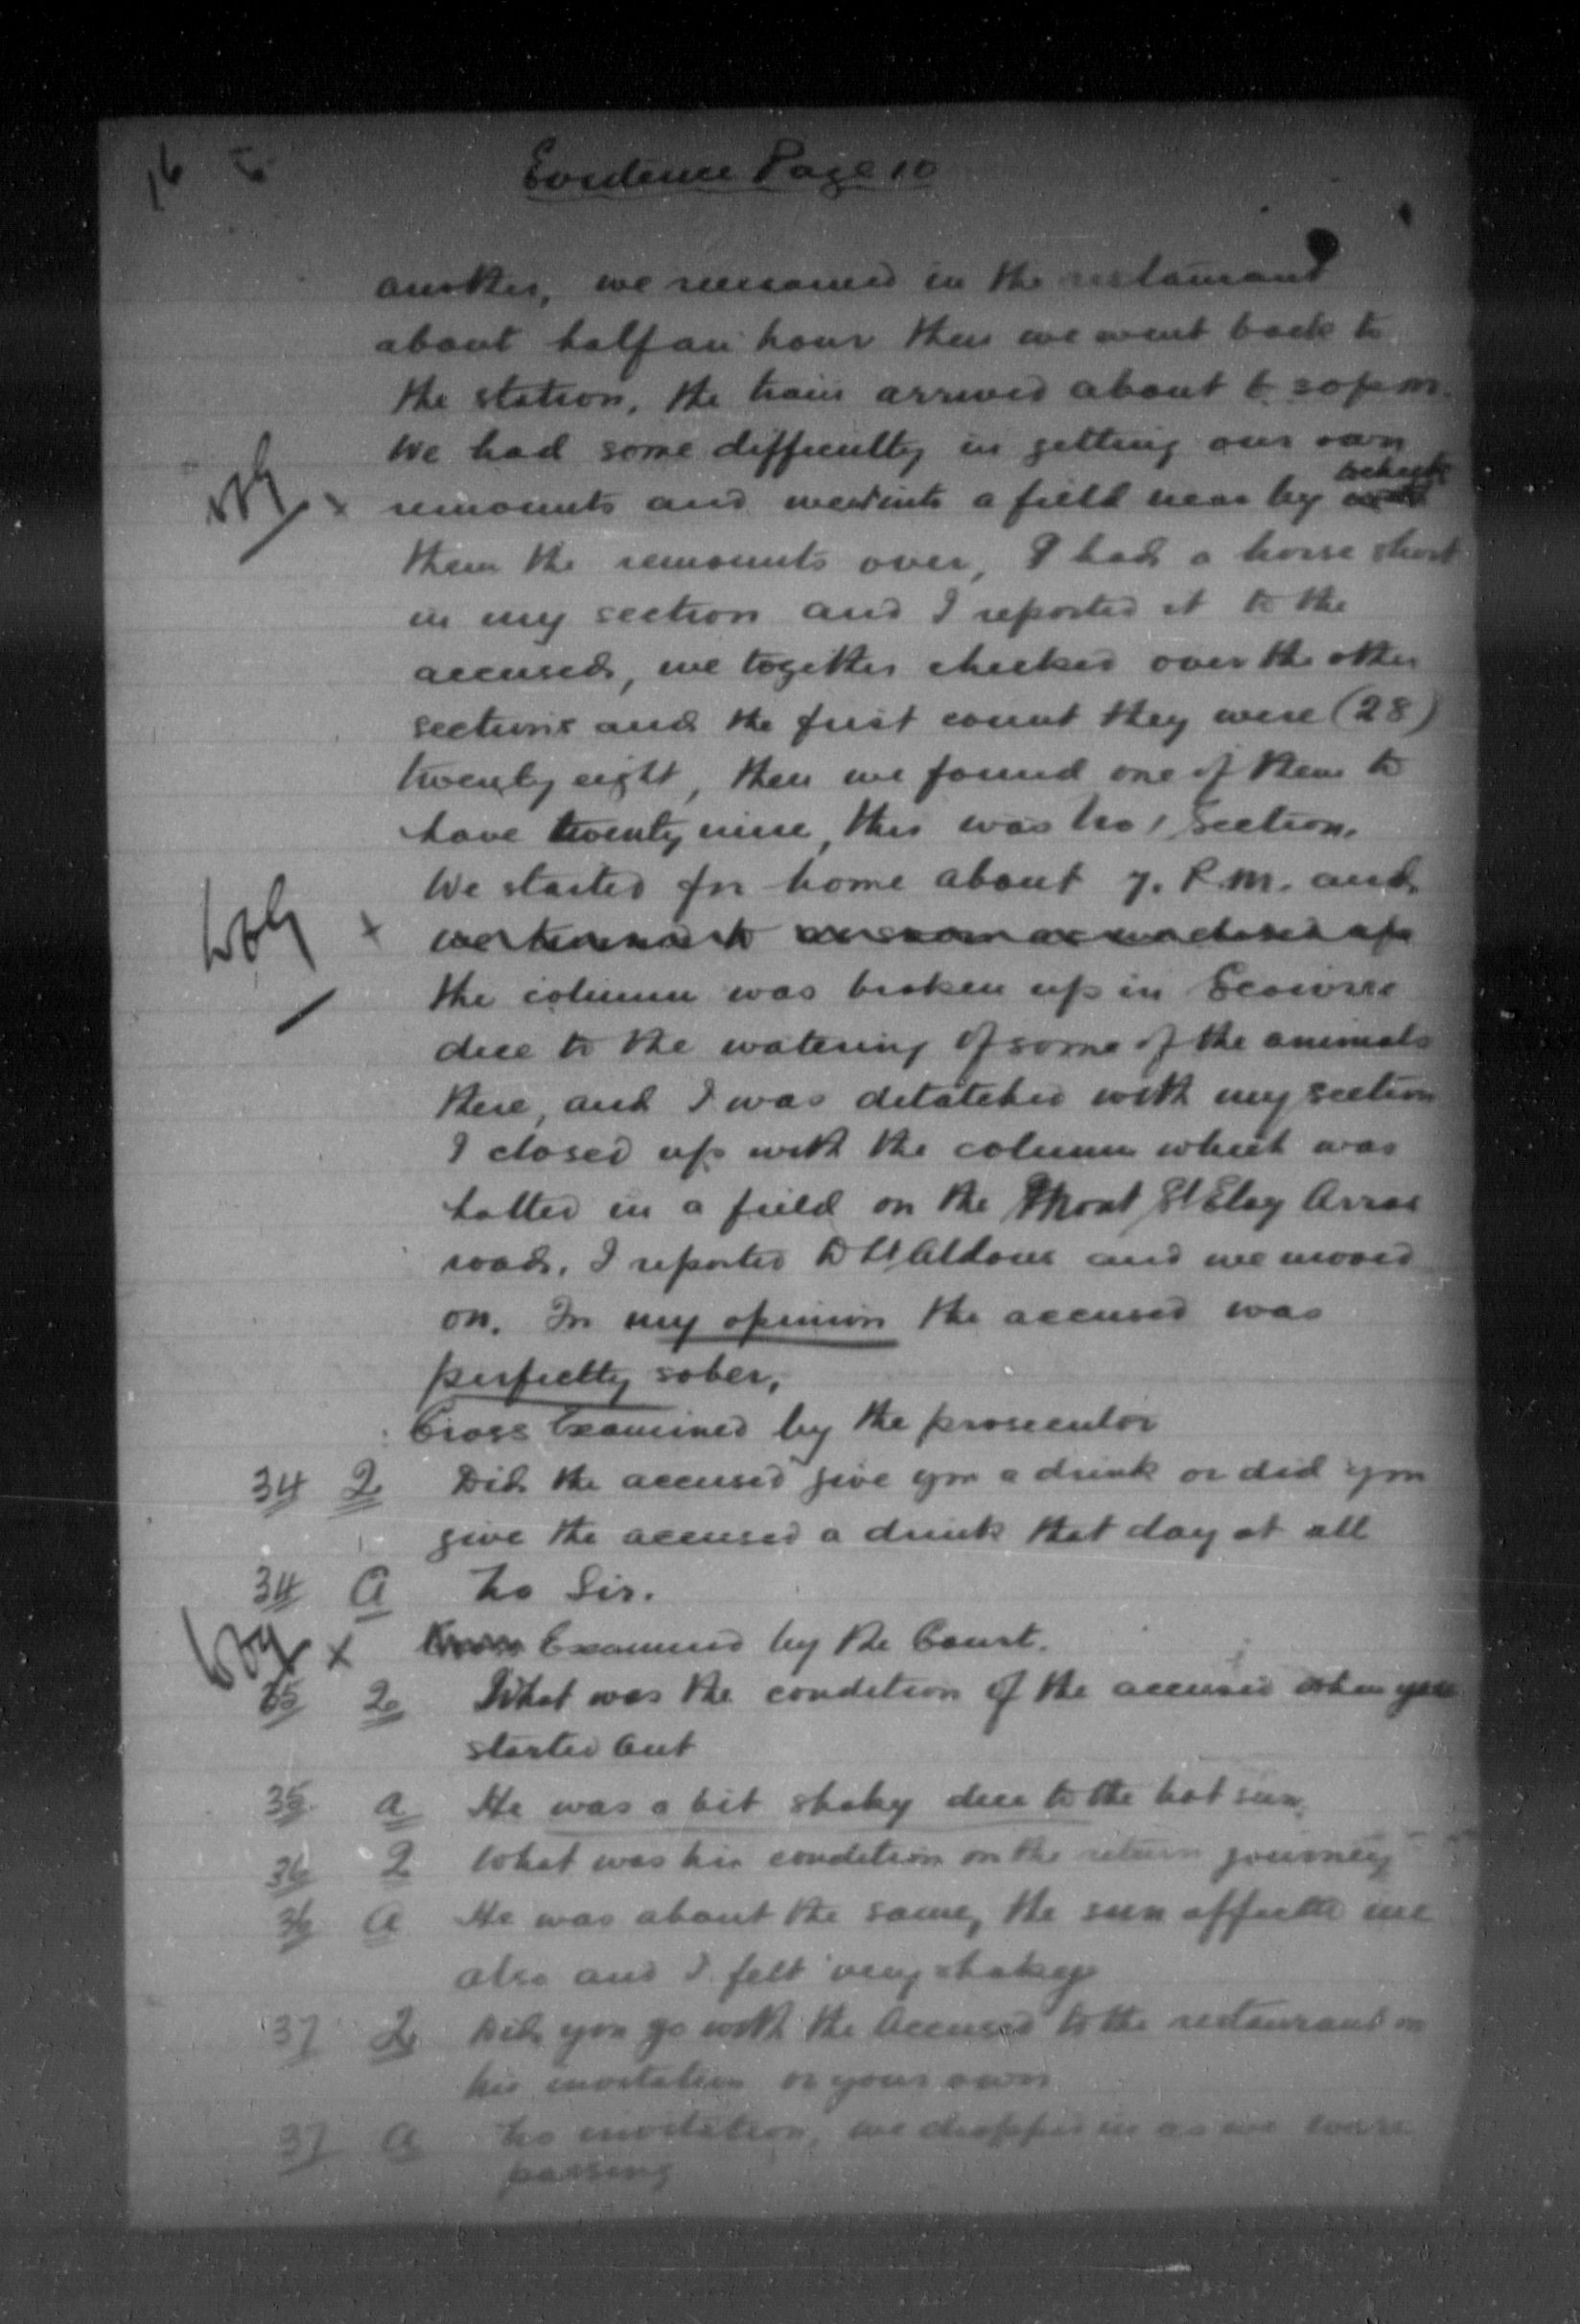 16
Evidence Page 10
another, we remained in the restaurant
about half an hour then we went back to
the station, the train arrived about 6.30 p.m.
We had some difficulty in getting our own
remounts and went into a field near by
them the remounts over, I had a horse short
in my section and I reported it to the
accused, we together checked over the other
sections and the first count they were (28)
twenty eight, then we found one of them to
have twenty nine, this was No 1 Section.
We started for home about 7. P.M. and
the column was broken up in Ecoivres
due to the watering of some of the animals
there, and I was detatched with my section
I closed up with the column which was
halted in a field on the Mont St Eloy Arras
road. I reported to Lt Aldous and we moved
on. In my opinion the accused was
perfectly sober,
Cross Examined by the prosecutor
34 Q Did the accused give you a drink or did you
give the accused a drink that day at all
34 A No Sir.
Examined by the Court.
35 Q What was the condition of the accused when you
started out
35 A He was a bit shaky due to the hot sun.
36 Q What was his condition on the return journey
36 A He was about the same, the sun affected me
also and I felt very shakey
37 Q Did you go with the Accused to the restaurant on
his invitation or your own
37 A No invitation, we dropped in as we were
passing